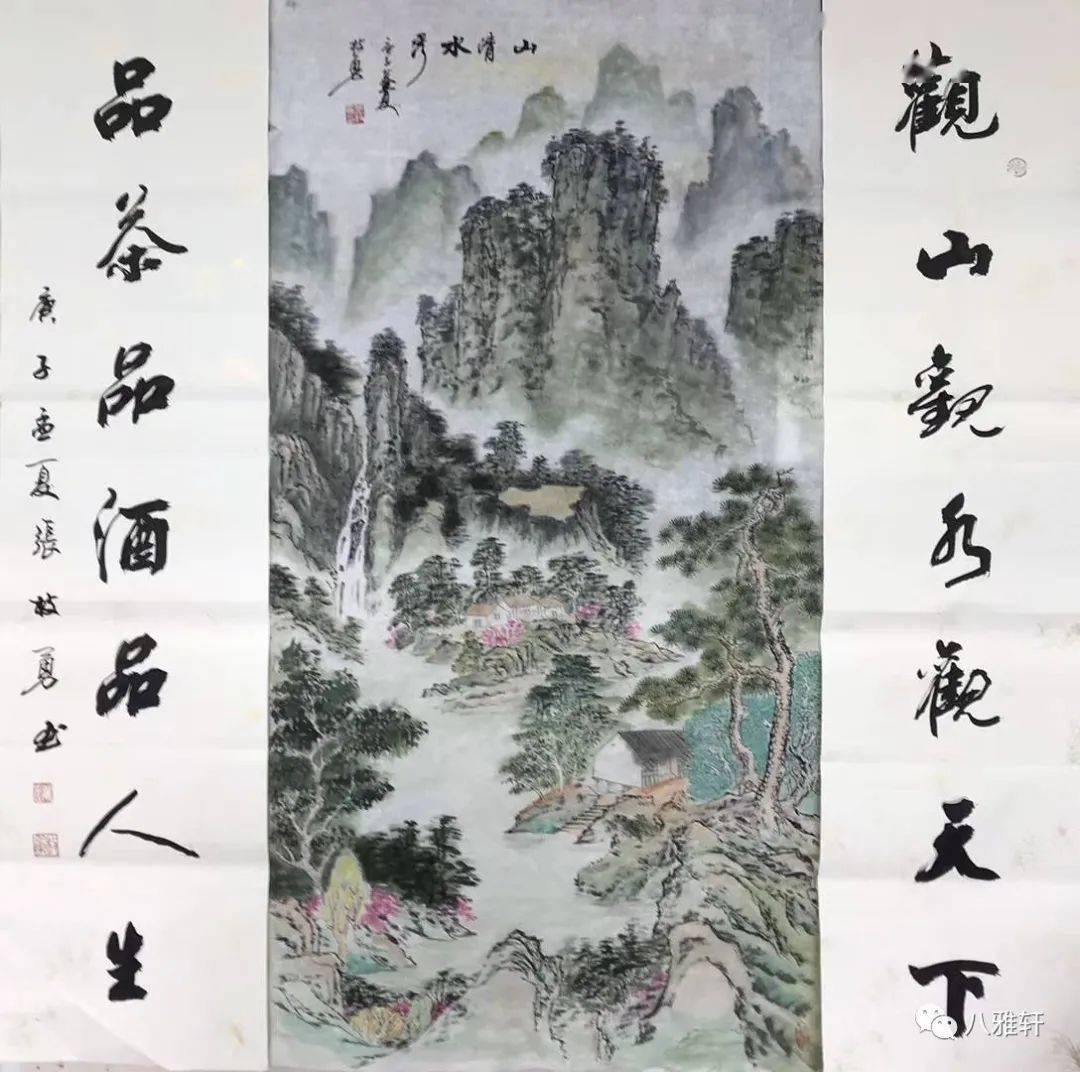 觀山觀水觀天下
山清水秀
庚子
品茶品酒品人生
庚子孟夏張枝勇书
八雅轩